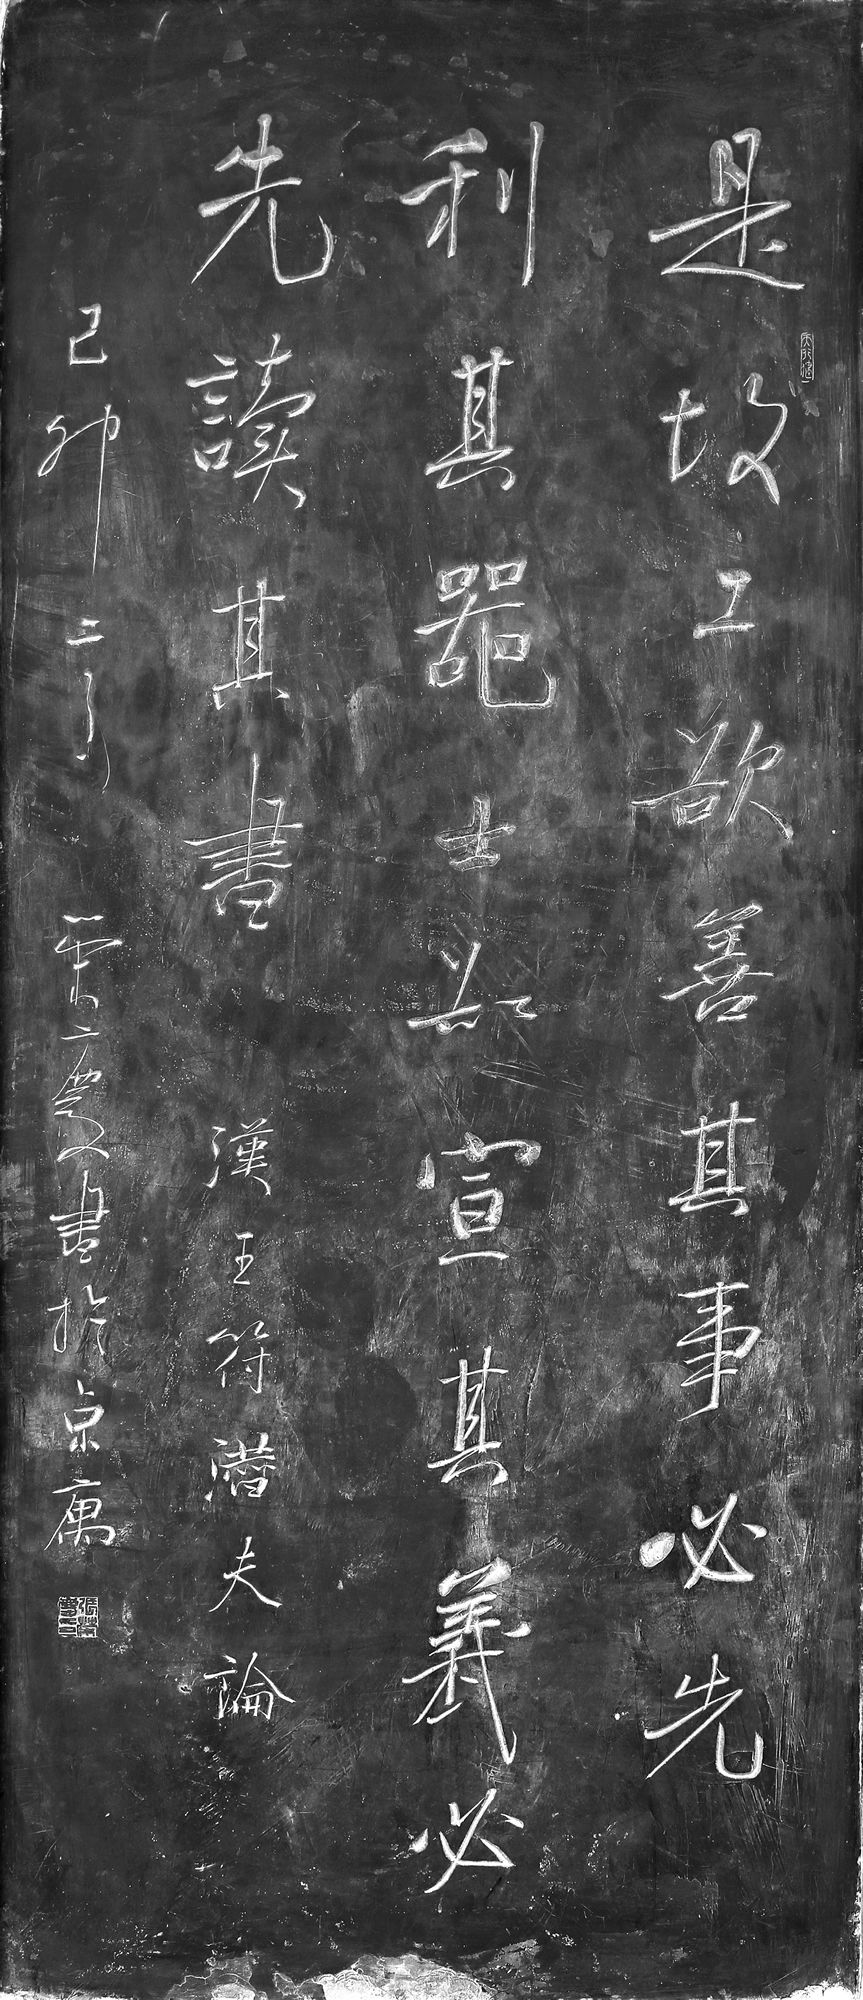 是故工欲善其事必先
利其器士欲宣其義必
先讀其書 漢王符潛夫論
己卯二月 榮慶書於京寓